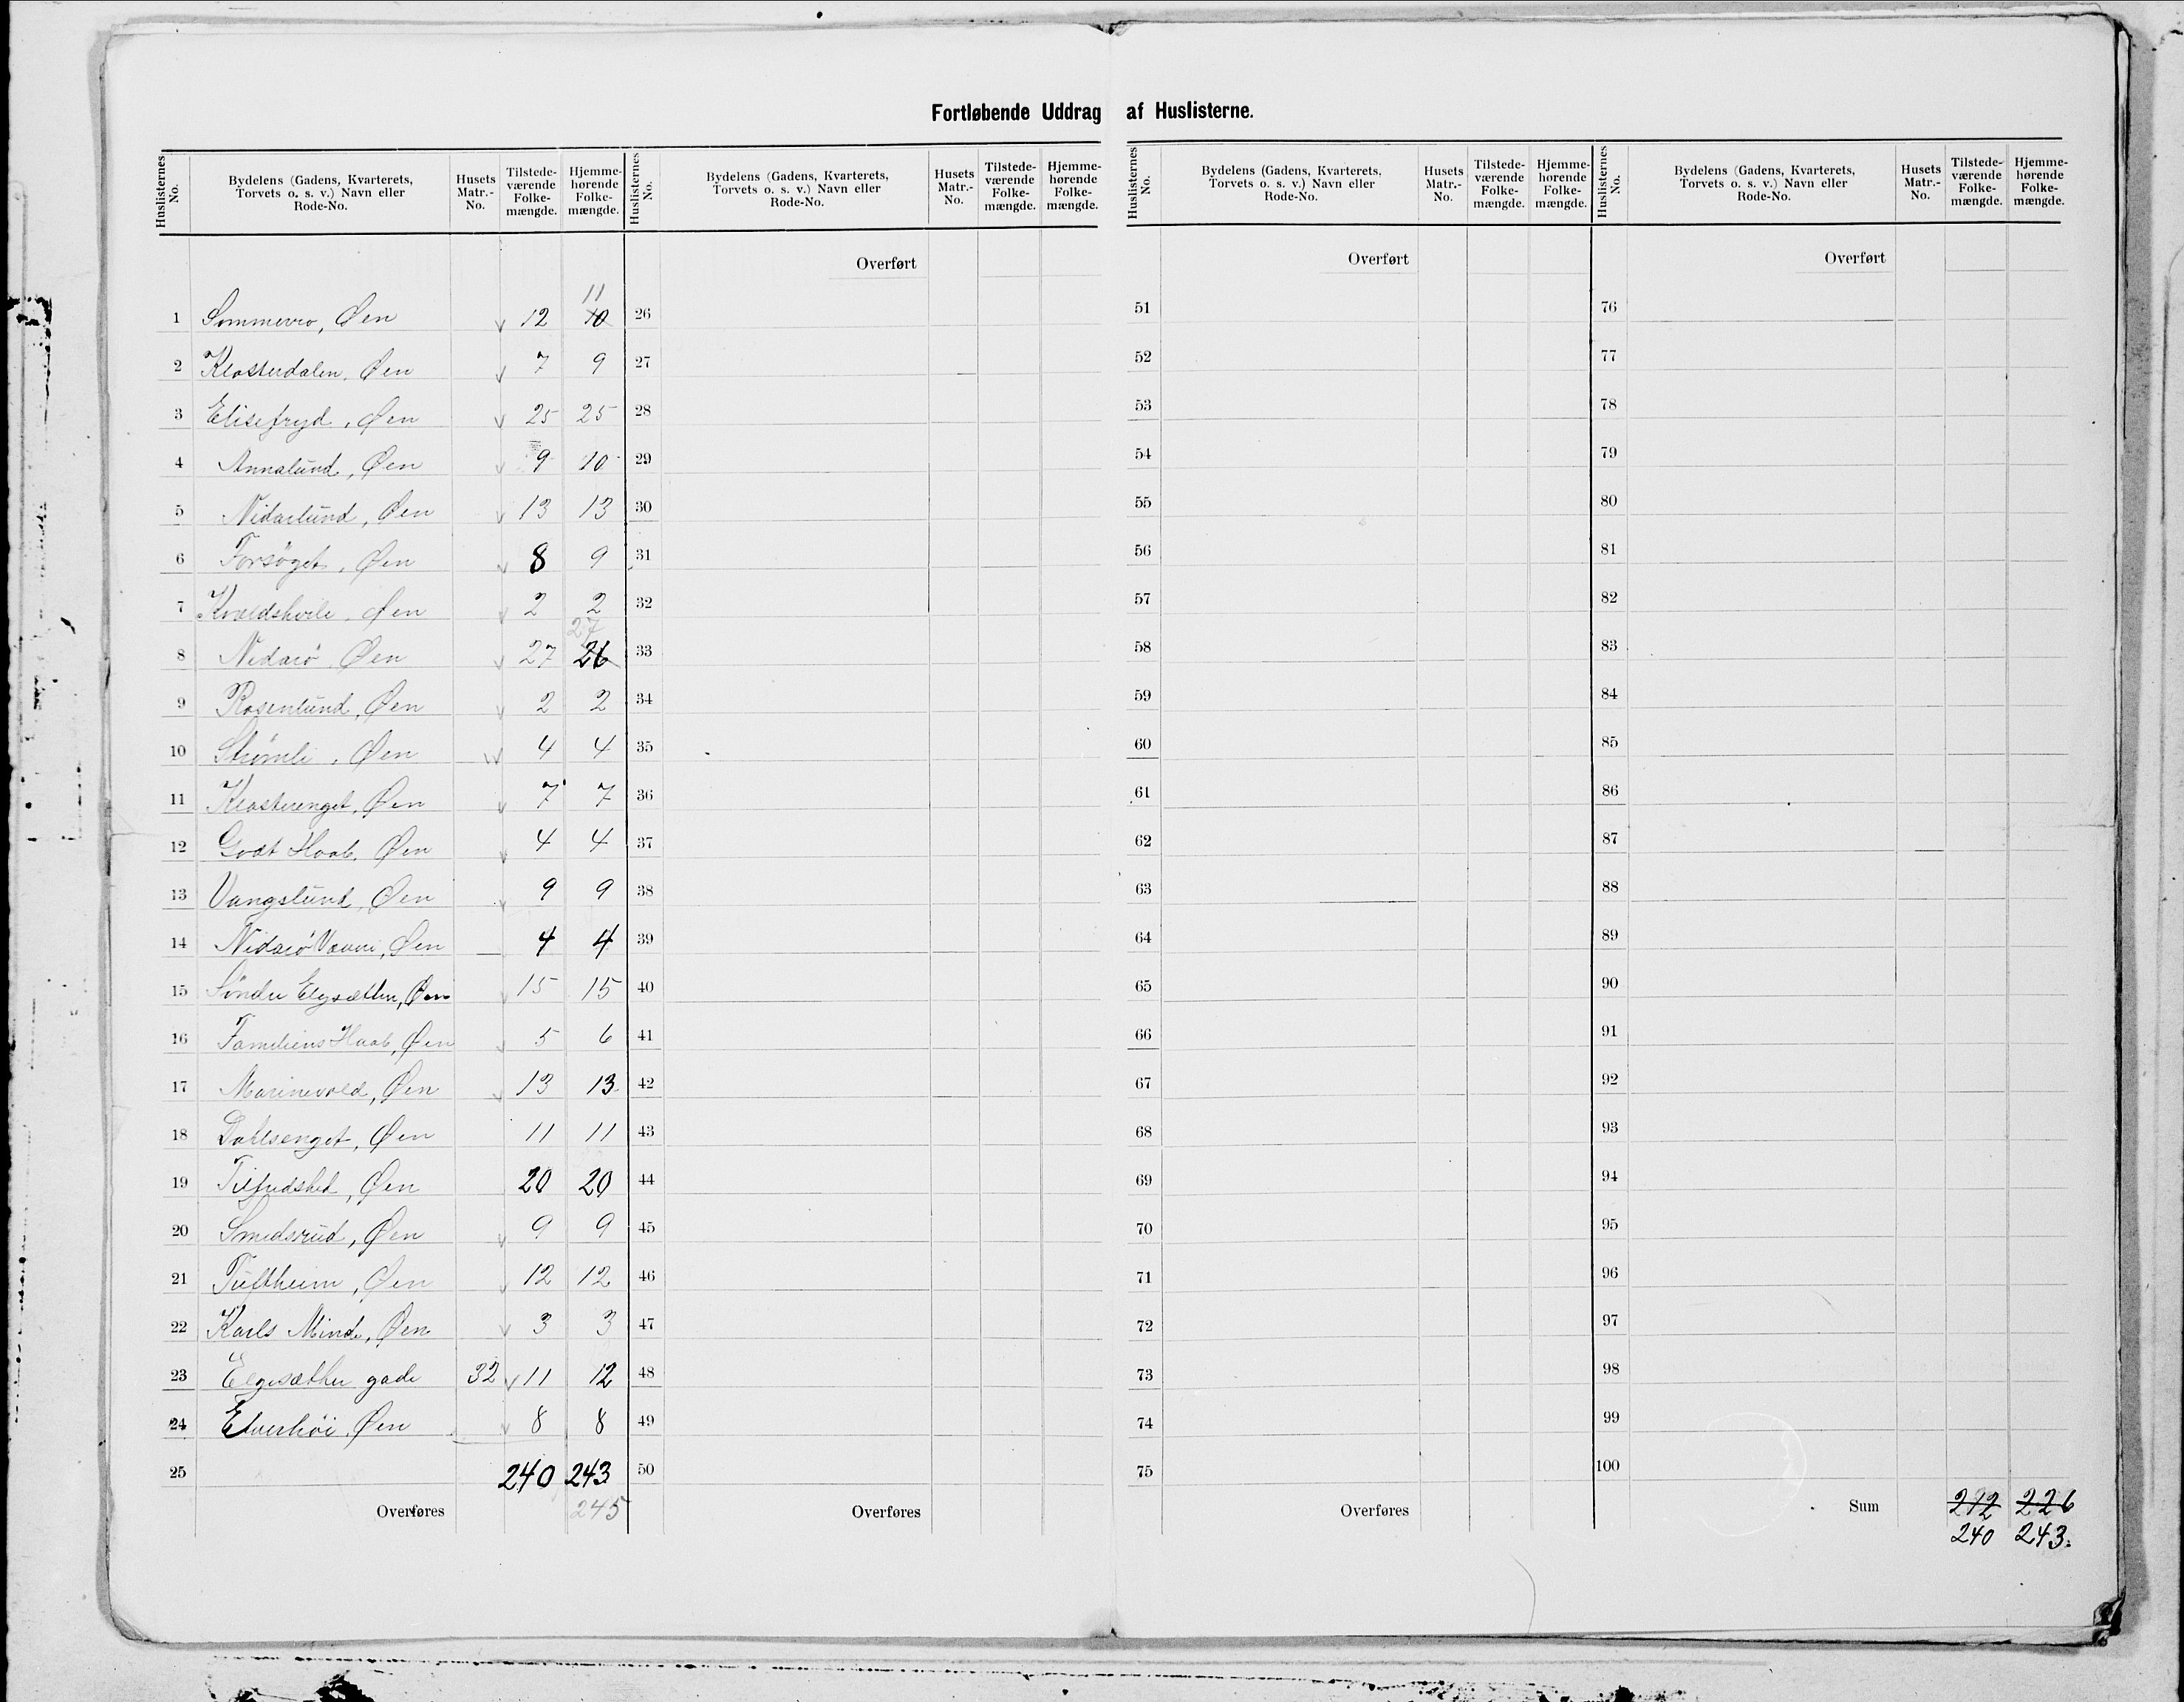 Fortløbende Uddrag af Huslisterne.
Huslisternes No. Bydelens (Gadens, Kvarterets, Torvets o. s. v.) Navn eller Rode-No. Husets Matr.-No. Tilstede-værende Folke-mængde. Hjemme-hørende Folke-mængde.
Huslisternes No. Bydelens (Gadens, Kvarterets, Torvets o. s. v.) Navn eller Rode-No. Husets Matr.-No. Tilstede-værende Folke-mængde. Hjemme-hørende Folke-mængde.
Huslisternes No. Bydelens (Gadens, Kvarterets, Torvets o. s. v.) Navn eller Rode-No. Husets Matr.-No. Tilstede-værende Folke-mængde. Hjemme-hørende Folke-mængde.
Huslisternes No. Bydelens (Gadens, Kvarterets, Torvets o. s. v.) Navn eller Rode-No. Husets Matr.-No. Tilstede-værende Folke-mængde. Hjemme-hørende Folke-mængde.
Overført Overført Overført
11
1 Sommerro, Øen 12 10 26 51 76
2 Klosterdalen, Øen 7 9 27 52 77
3 Elisefryd, Øen 25 25 28 53 78
4 Annalund, Øen 9 10 29 54 79
5 Nidarlund, Øen 13 13 30 55 80
6 Forsøget, Øen 8 9 31 56 81
7 Kvældshvile, Øen 2 2 32 57 82
27
8 Nidarö Øen 27 26 33 58 83
9 Rosenlund, Øen 2 2 34 59 84
10 Strömli, Øen 4 4 35 60 85
11 Klosterenget, Øen 7 7 36 61 86
12 Godt Haab, Øen 4 4 37 62 87
13 Vangslund, Øen 9 9 38 63 88
14 Nidarö, Øen 4 4 39 64 89
15 Søndre Elgsæther, Øen 15 15 40 65 90
16 Familiens Haab, Øen 5 6 41 66 91
17 Marinevold, Øen 13 13 42 67 92
18 Dahlsenget, Øen 11 11 43 68 93
19 Tilfredshed, Øen 20 20 44 69 94
20 Smedsrud, Øen 9 9 45 70 95
21 Tuftheim, Øen 12 12 46 71 96
22 Karls Minde, Øen 3 3 47 72 97
23 Elgesæther gade 32 11 12 48 73 98
24 Elverhöi Øen 8 8 49 74 99
25 240 243 50 75 100
Overføres 245 Overføres Overføres Sum 212 226
240 243.